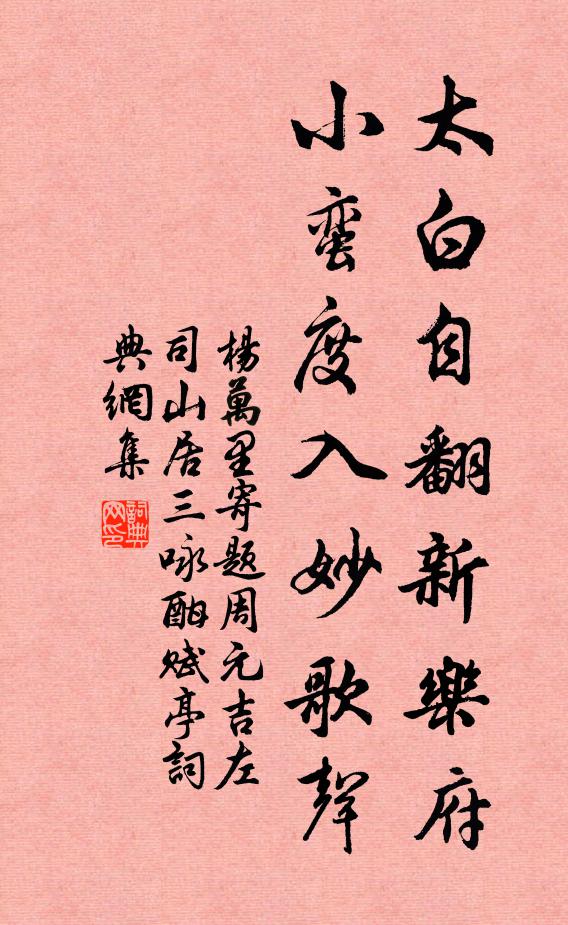 太白自翻新樂府
小蛮度入妙歌聲
楊萬里寄题周元吉左
司山居三咏酣赋亭詞
典網集
詞典网印